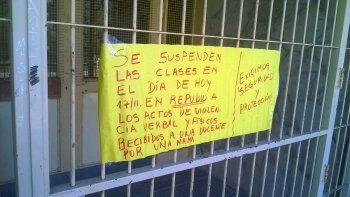 SE SUSPENDEN
LAS CLASES EN
EL DÍA DE HOY
17/11. EN REPUDIO A
LOS ACTOS DE VIOLEN
CIA VERBAL Y FÍSICOS
RECIBIDOS A UNA DOCENTE
POR UNA MAMÁ
EXIGIMOS
SEGURIDAD
Y
PROTECCIÓN